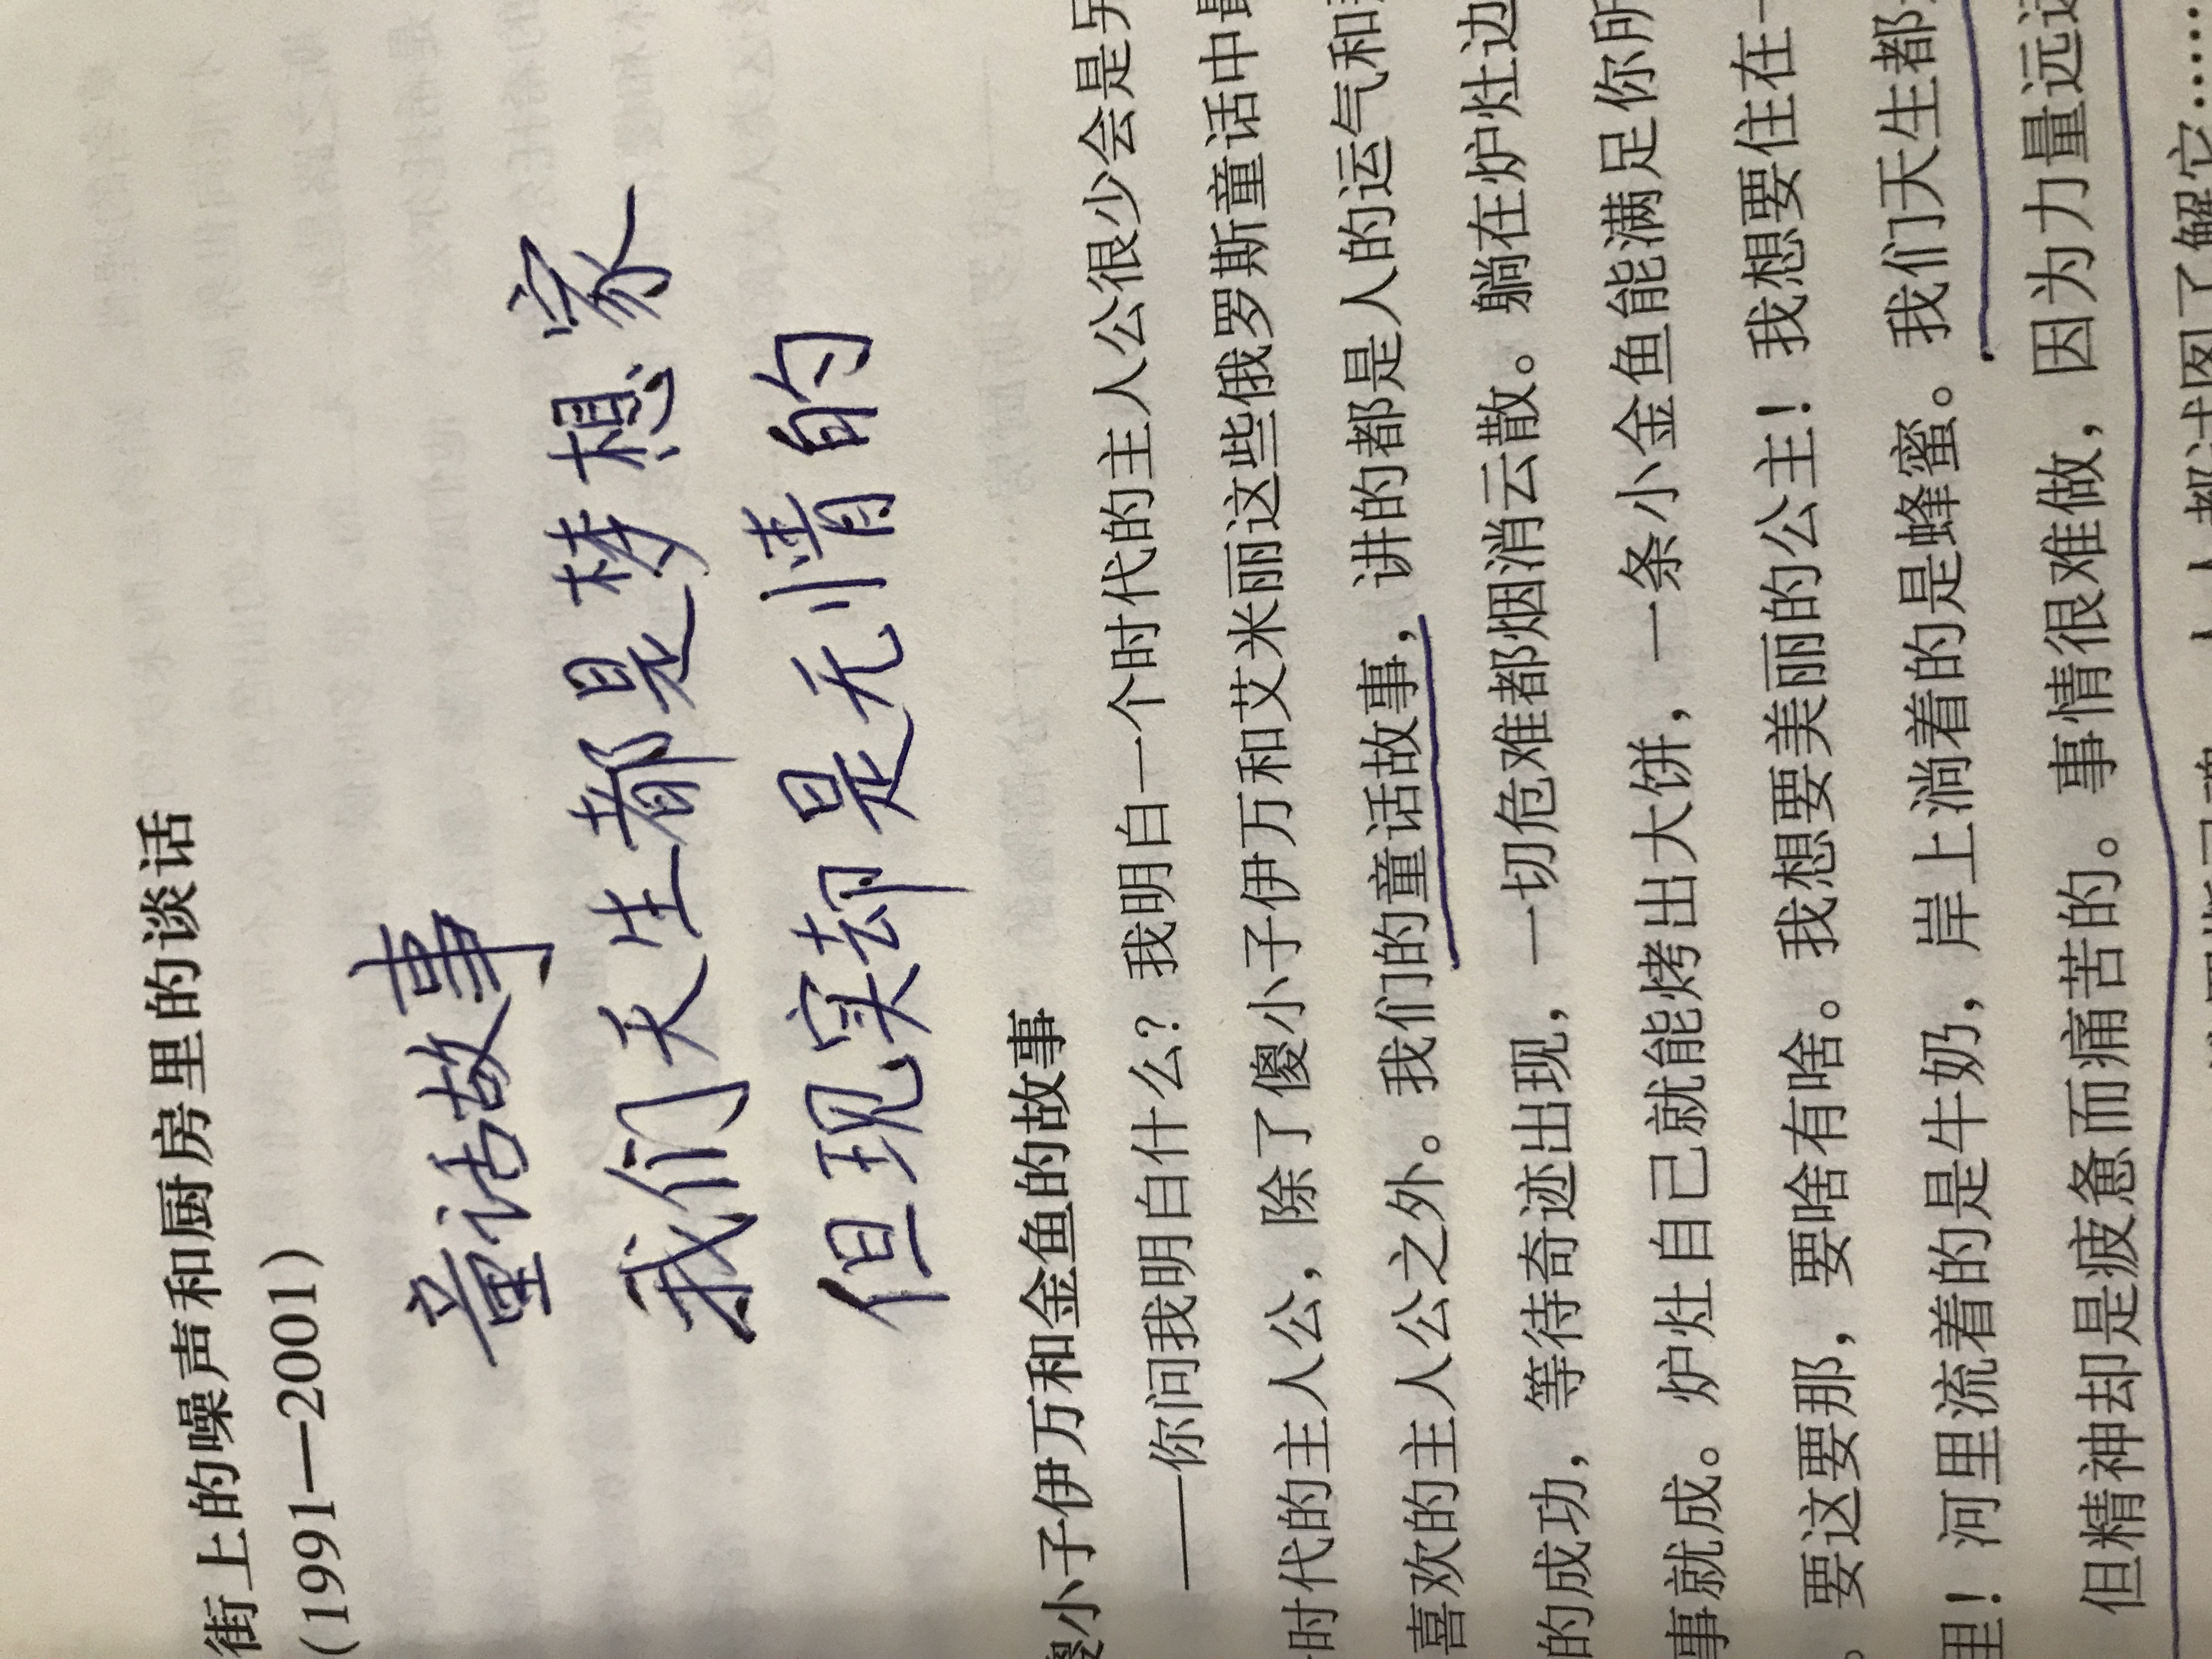 街上的噪声和厨房里的谈话
(1991—2001)
童话故事
我们天生都是梦想家
但现实却是无情的
傻小子伊万和金鱼的故事
——你问我明白什么？我明白一个时代的主人公很少会是另
时代的主人公，除了傻小子伊万和艾米丽这些俄罗斯童话中最
喜欢的主人公之外。我们的童话故事，讲的都是人的运气和
的成功，等待奇迹出现，一切危难都烟消云散。躺在炉灶边
事就成。炉灶自己就能烤出大饼，一条小金鱼能满足你所
。要这要那，要啥有啥。我想要美丽的公主！我想要住在一
里！河里流着的是牛奶，岸上淌着的是蜂蜜。我们天生都
但精神却是疲惫而痛苦的。事情很难做，因为力量远远
人人都试图了解它……